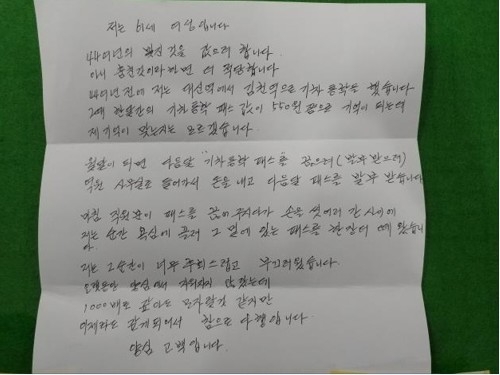 저는 61세 여성입니다
44여년의 빚진 것을 갚으려 합니다.
아니 훔친것이라 하면 더 적당합니다
44여년전에 저는 대신역에서 김천역으로 기차 통학을 했습니다
그때 한달간의 기차통학 패스 값이 550원 쯤으로 기억이 되는데
제 기억이 맞는지는 모르겠습니다.
월말이 되면 다음달 "기차통학 패스"를 끊으러 (발부 받으려)
역원 사무실로 들어가서 돈을 내고 다음달 패스를 발부 받습니다
마침 직원분이 패스를 끊어주시다가 손을 씻으러 간 사이에
저는 순간 욕심에 끌려 그 옆에 있는 패스를 한장 더 떼 왔습니
다.
저는 그 순간이 너무 후회스럽고 부끄러웠습니다.
오랫동안 양심에서 지워지지 않았는데
1000배로 갚아도 모자랄것 같지만
이제라도 갚게 되어서 참으로 다행입니다.
양심 고백입니다.